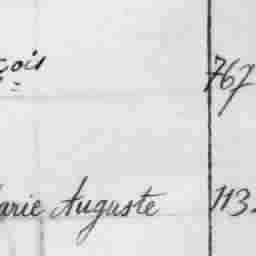 çois 767
arie Auguste 113